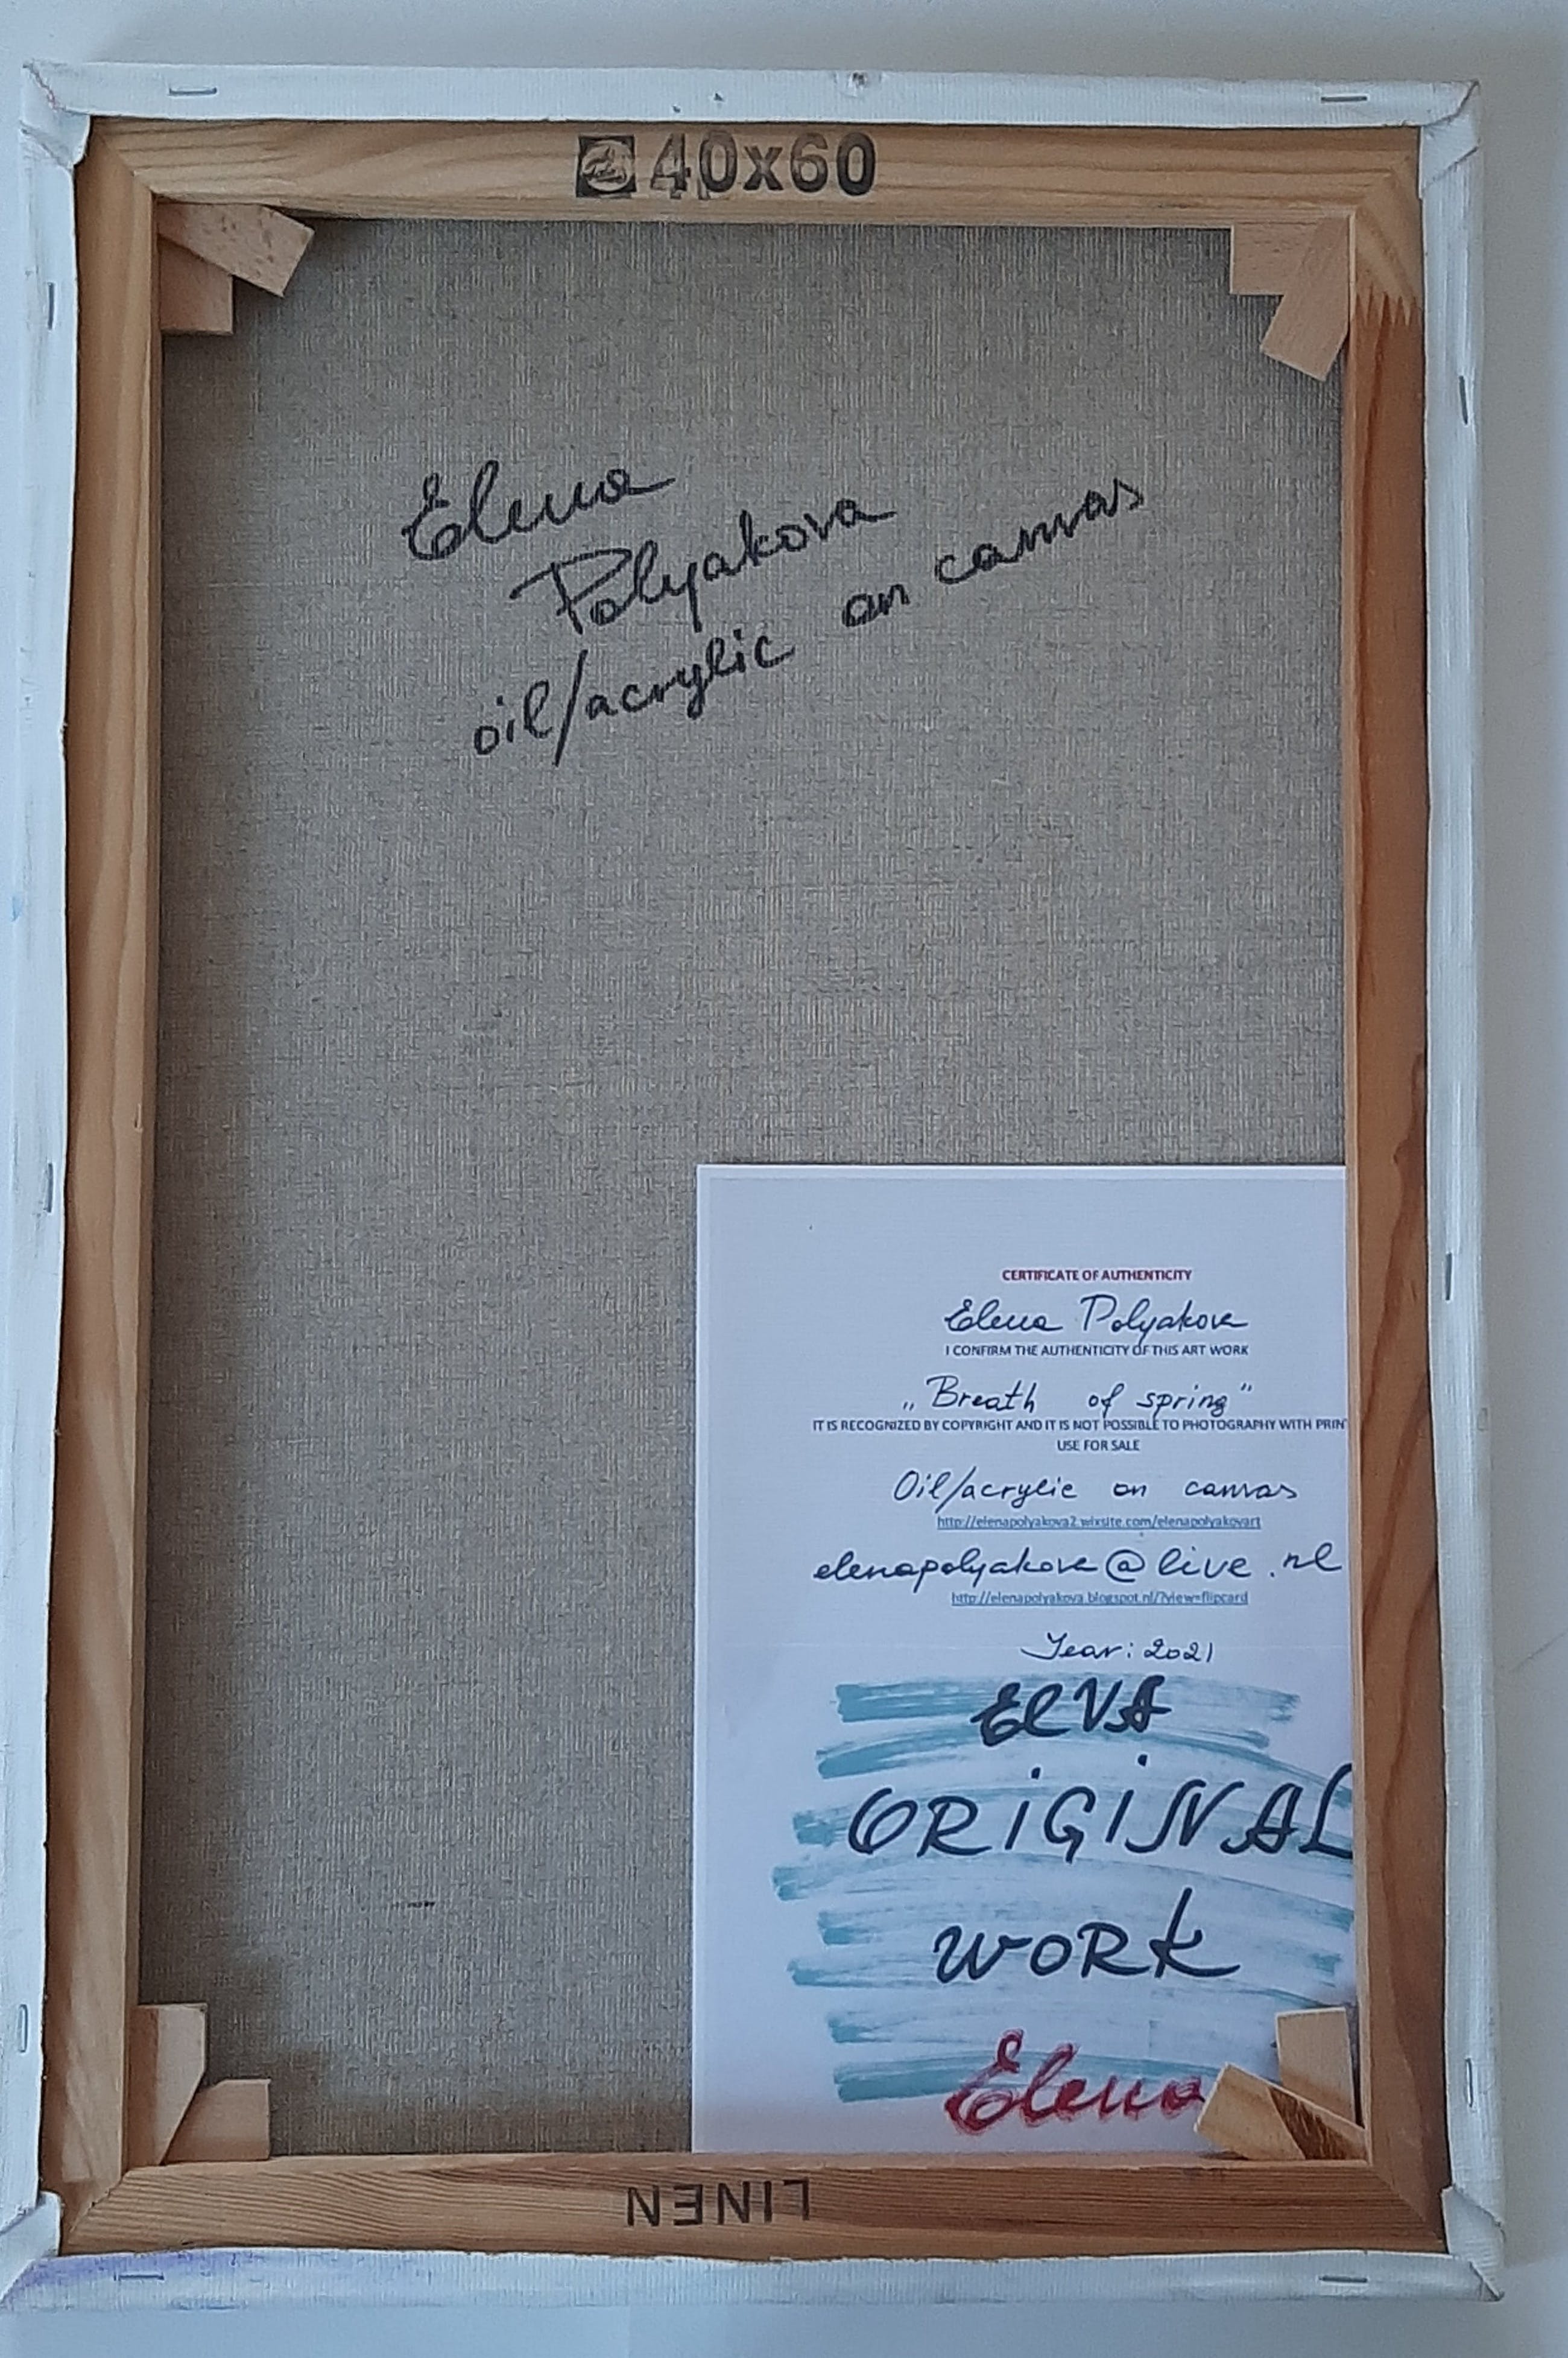 40x60
Elena
Polyakova
oil/acrylic on canvas
CERTIFICATE OF AUTHENTICITY
Elena Polyakova
I CONFIRM THE AUTHENTICITY OF THIS ART WORK
„Breath of spring"
IT IS RECOGNIZED BY COPYRIGHT AND IT IS NOT POSSIBLE TO PHOTOGRAPHY WITH PRIN
USE FOR SALE
Oil/acrylic on canvas
http://elenapolyakova2.wixsite.com/elenapolyakovart
elenapolyakova@live.nl
http://elenapolyakova.blogspot.nl/?view=flipcard
Year: 2021
ELVA
ORiGiNAL
WORK
Elena
LINEN